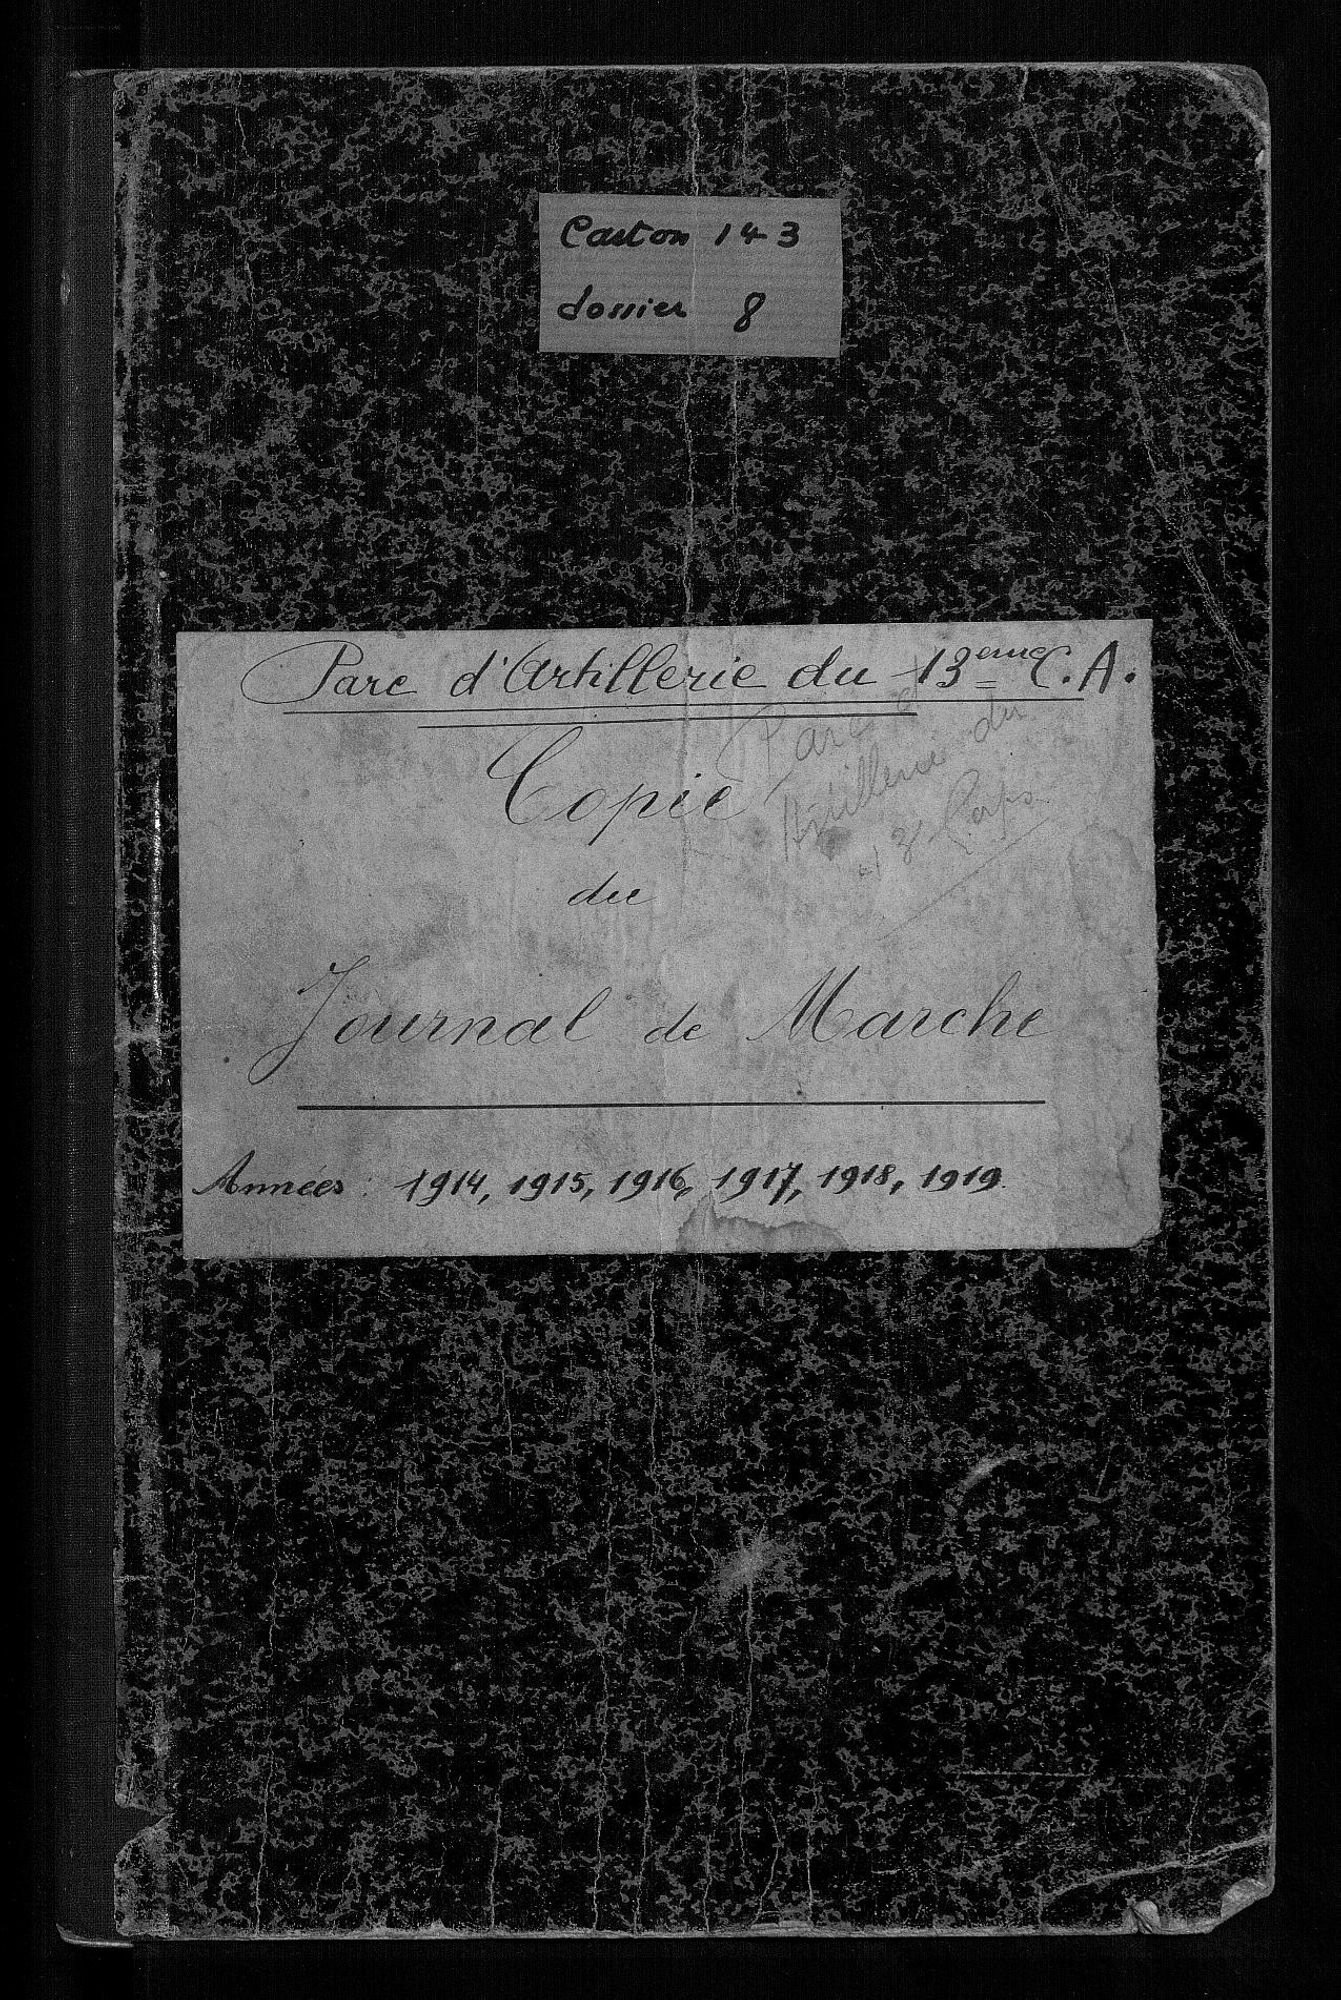 Carton 143
dossier 8
Parc d'Artillerie du 13ème C.A.
Parc d'
Artillerie du
13e Corps
Copie
du
Journal de Marche
Années : 1914, 1915, 1916, 1917, 1918, 1919.